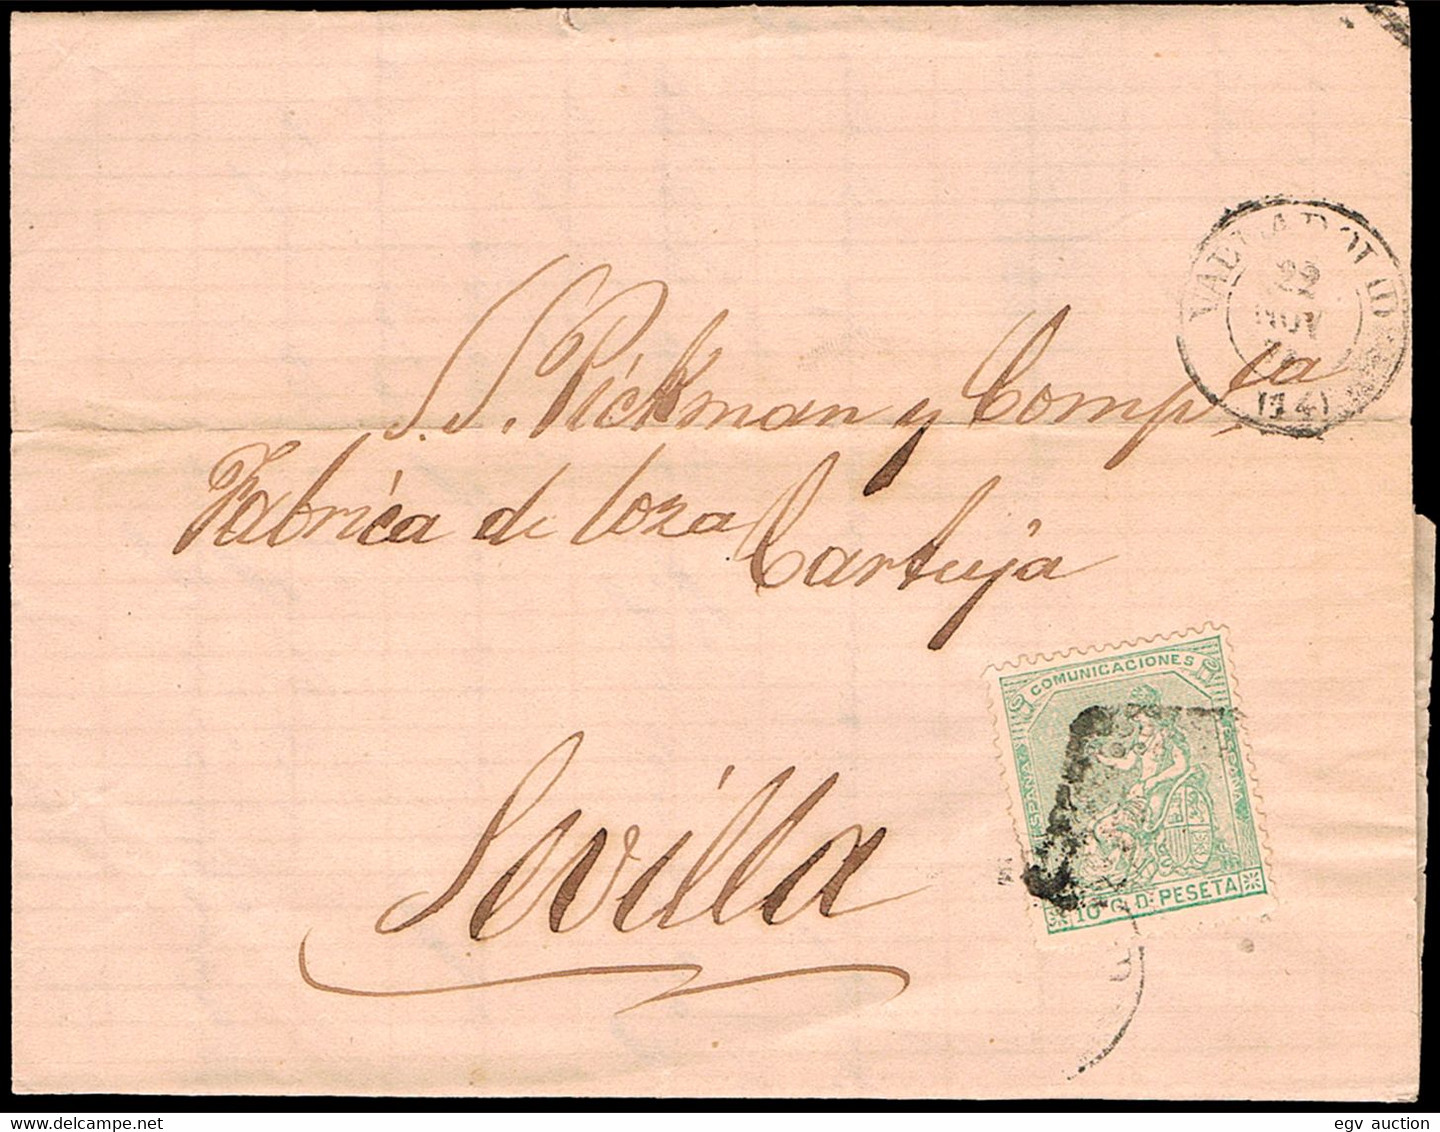 VALLADOLID
22
NOV
(14)
S.S. Pickman y Comp.ia
Fabrica de loza Cartuja
Sevilla
COMUNICACIONES
ESPAÑA
ESPAÑA
10 C. D. PESETA
egv auction